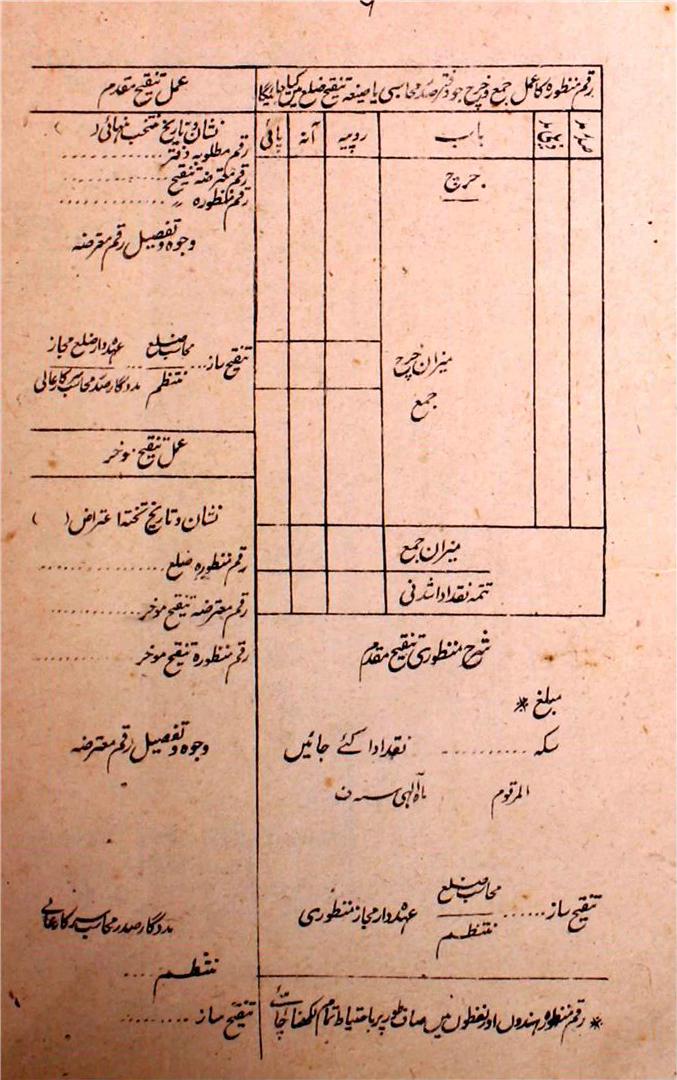 ۹
رقم منظورہ کا عمل جمع و خرچ جو دفتر صدر محاسبی یا صیغہ تنقیح ضلع میں کیا جائیگا
صدر مد
ذیلی مد
باب
روپیہ
آنہ
پائی
خرچ
میزان خرچ
جمع
میزان جمع
تتمہ نقد ادا شدنی
شرح منظوری تنقیح مقدم
مبلغ *
سکہ .......... نقد ادا کئے جائیں
المرقوم ماہ الٰہی سنہ ف
تنقیح ساز ...... محاسب ضلع عہدہ دار مجاز منظوری
منتظم
* رقم منظورہ ہندسوں اور لفظوں میں صاف طور پر باحتیاط تمام لکھنا چاہئے
عمل تنقیح مقدم
نشان و تاریخ منتخب نہائی ( )
رقم مطلوبہ دفتر ..........
رقم معترضہ تنقیح ..........
رقم منظورہ 〃 ..........
وجوہ و تفصیل رقم معترضہ
تنقیح ساز .... محاسب ضلع ... عہدہ دار ضلع مجاز
منتظم مددگار صدر محاسب سرکار عالی
عمل تنقیح موخر
نشان و تاریخ تختہ اعتراض ( )
رقم منظورہ ضلع ..........
رقم معترضہ تنقیح موخر ..........
رقم منظورہ تنقیح موخر ..........
وجوہ و تفصیل رقم معترضہ
مددگار صدر محاسب سرکار عالی
منتظم ....
تنقیح ساز ........